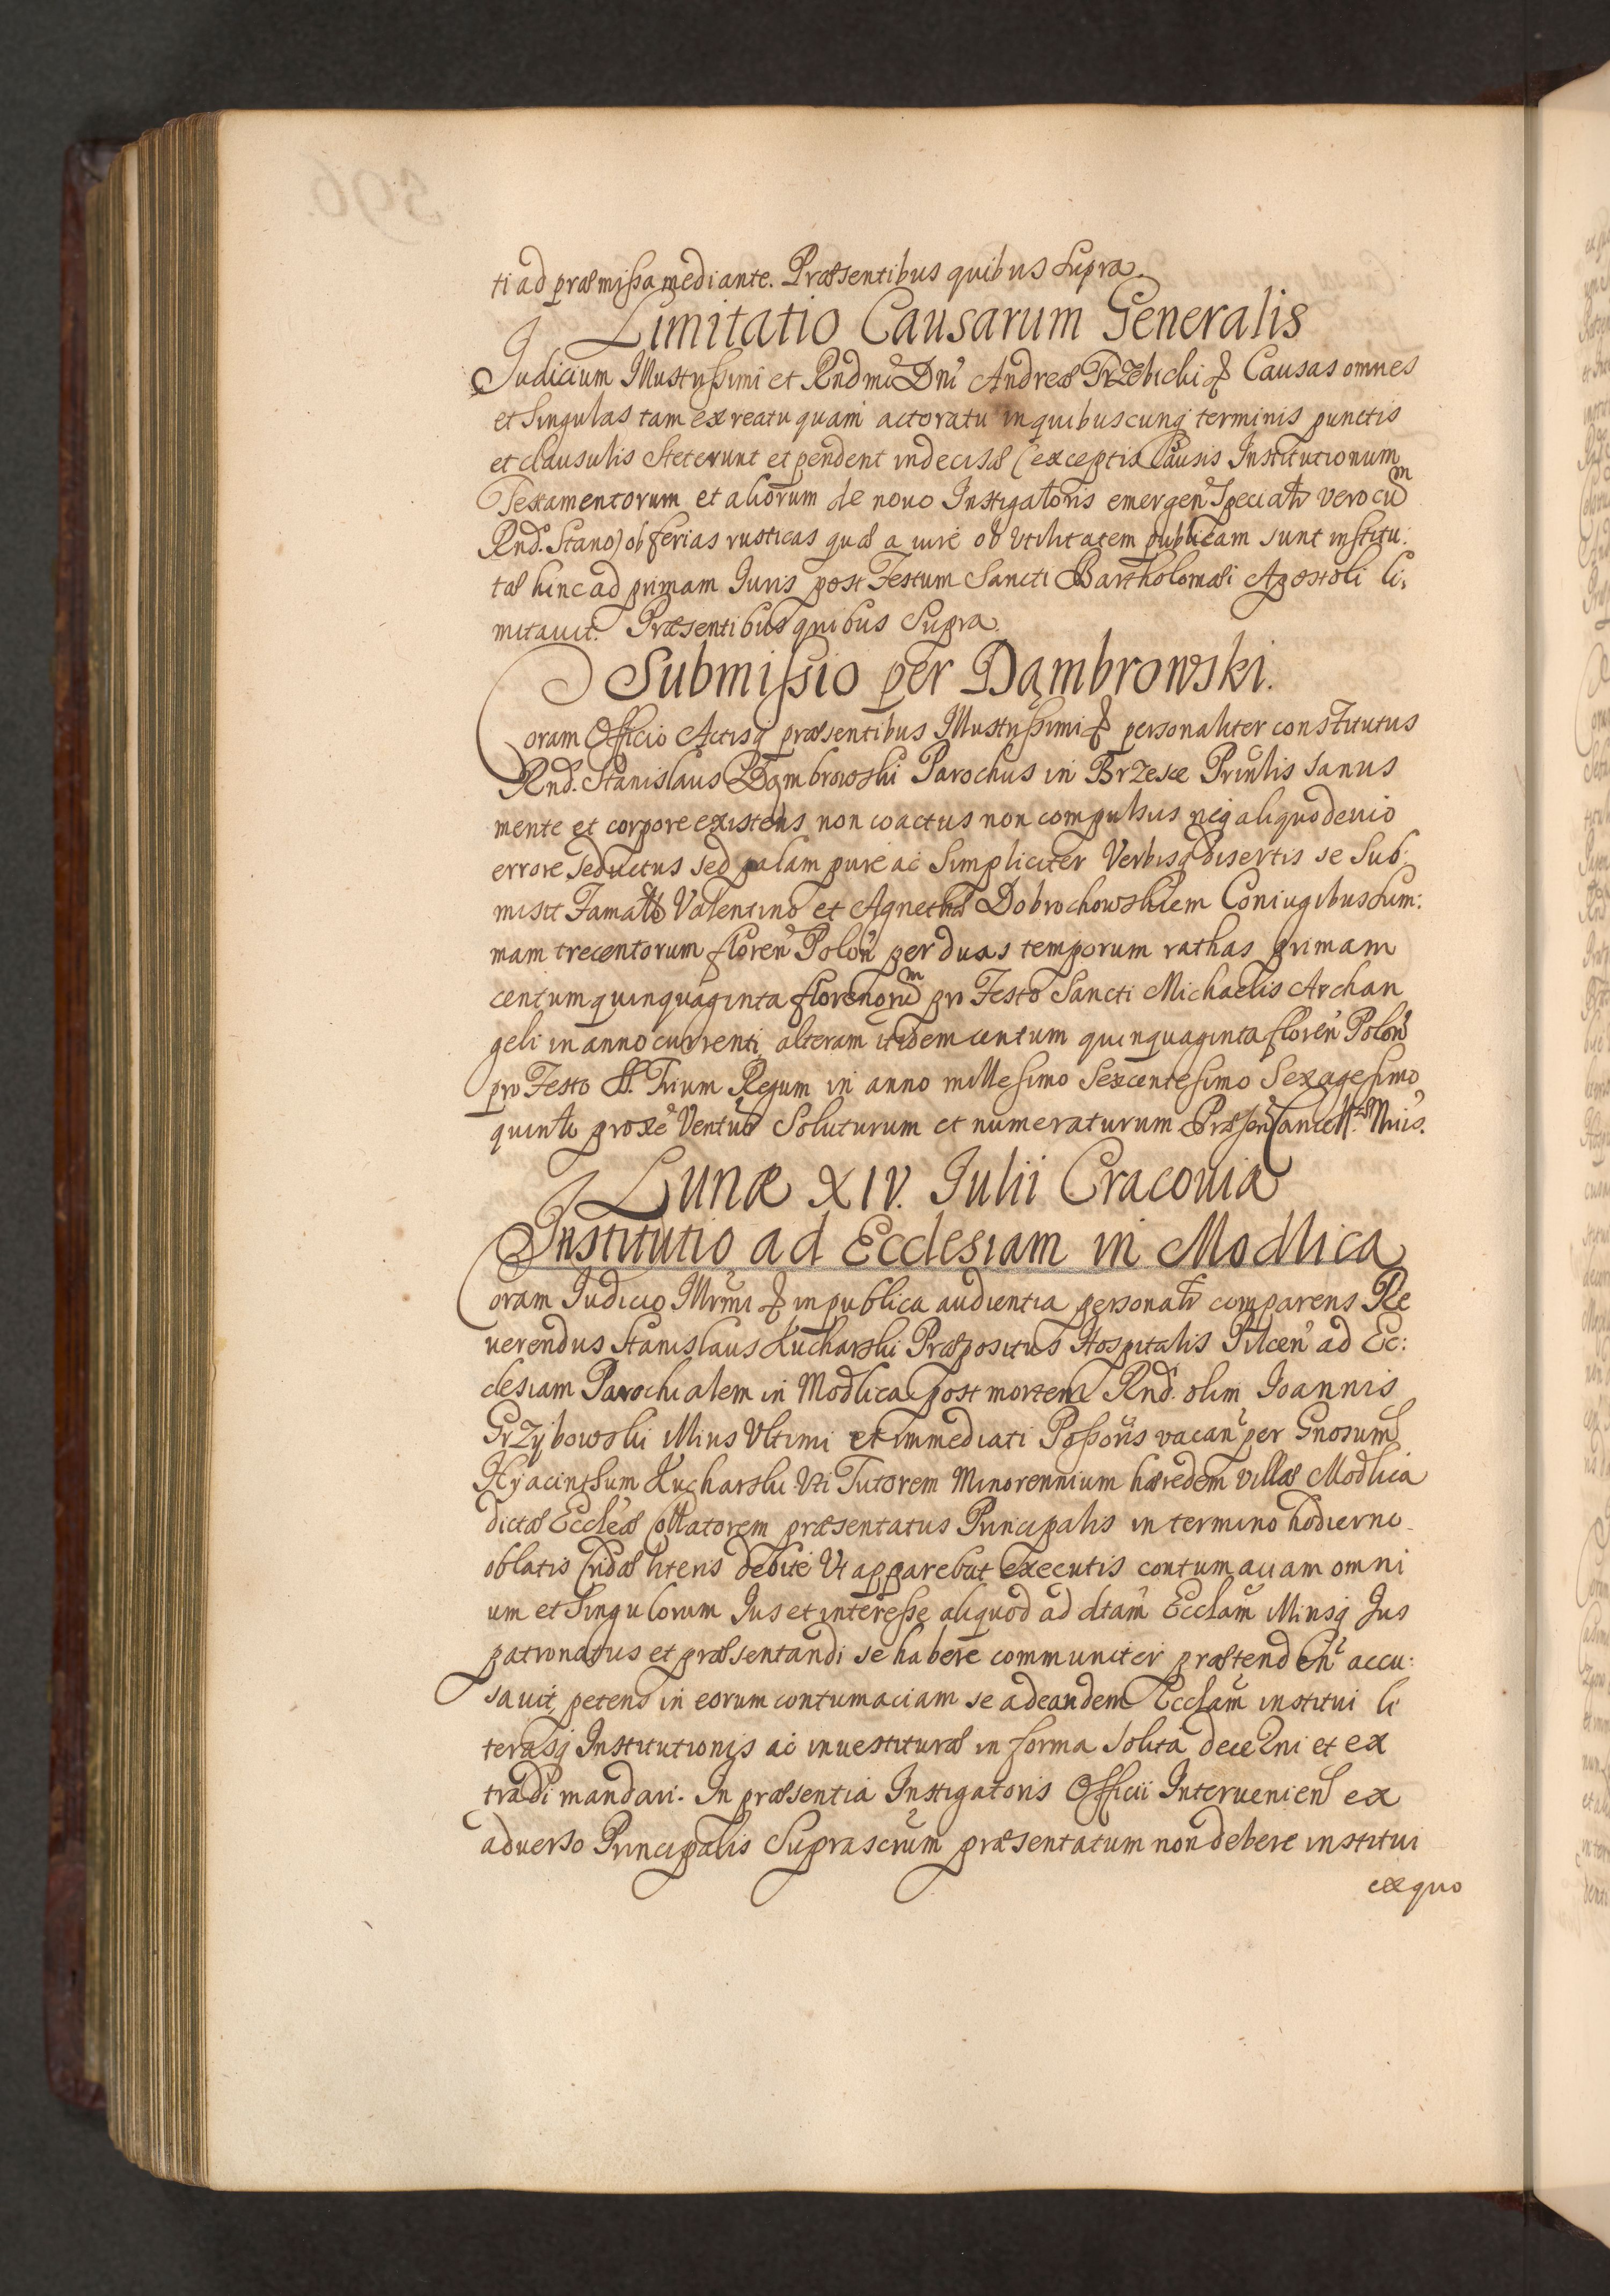 ti ad præmissa mediante. Præsentibus quibus Supra.
Limitatio Causarum Generalis
Judicium Illustrissimi et Rndmi Dni Andreæ Trzebicki &c Causas omnes
et Singulas tam ex reatu quam actoratu in quibuscunq terminis punctis
et clausulis Steterunt et pendent indecisæ (exceptis Causis Institutionum
Testamentorum et aliorum de nouo Instigatoris emergen Speciatr vero cum
Rnd. Stano) ob ferias rusticas quæ a iure ob Utilitatem publicam sunt institu:
tæ hinc ad primam Juris post Festum Sancti Bartholomæi Apostoli li:
mitauit. Præsentibus quibus Supra.
Submissio per Dąmbrowski.
Coram Officio Actisq præsentibus Illustrissimi &c personaliter constitutus
Rnd. Stanislaus Dąmbrowski Parochus in Brzesce Prinlis sanus
mente et corpore existens non coactus non compulsus neq aliquo deuio
errore seductus sed palam pure ac Simpliciter Verbisq disertis se Sub:
misit Famato Valentino et Agnethæ Dobrochowskiem Coniugibus Sum:
mam trecentorum floren Polon per duas temporum rathas primam
centum quinquaginta florenorum pro Festo Sancti Michaelis Archan
geli in anno currenti alteram itidem centum quinquaginta floren Polon
pro Festo SS. Trium Regum in anno millesimo Sexcentesimo Sexagesimo
quinto proxe Ventur Soluturum et numeraturum Præsen Cancell
Lunæ XIV. Julii Cracouiæ
Institutio ad Ecclesiam in Modlica
Coram Judicio Illrmi &c in publica audientia personatr comparens Re
uerendus Stanislaus Kucharski Præpositus Hospitalis Pilcen ad Ec:
clesiam Parochialem in Modlica post mortem Rnd. olim Joannis
Grzybowski Illius Ultimi et immediati Possoris vacan per Gnosum
Hyacinthum Kucharski Uti Tutorem Minorennium hæredem villæ Modlica
dictæ Eccleæ Collatorem præsentatus Principalis in termino hodierno
oblatis Cridæ literis debite Ut apparebat executis contumaciam omni
um et Singulorum Jus et interesse aliquod ad dtam Ecclam Illinsq Jus
patronatus et præsentandi se habere communiter prætenden accu:
sauit, petens in eorum contumaciam se ad eandem Ecclam institui li
terasq Institutionis ac inuestituræ in forma solita decerni et ex
tradi mandari. In præsentia Instigatoris Officii Interuenien ex
aduerso Principalis Suprascrum præsentatum non debere institui
ex quo